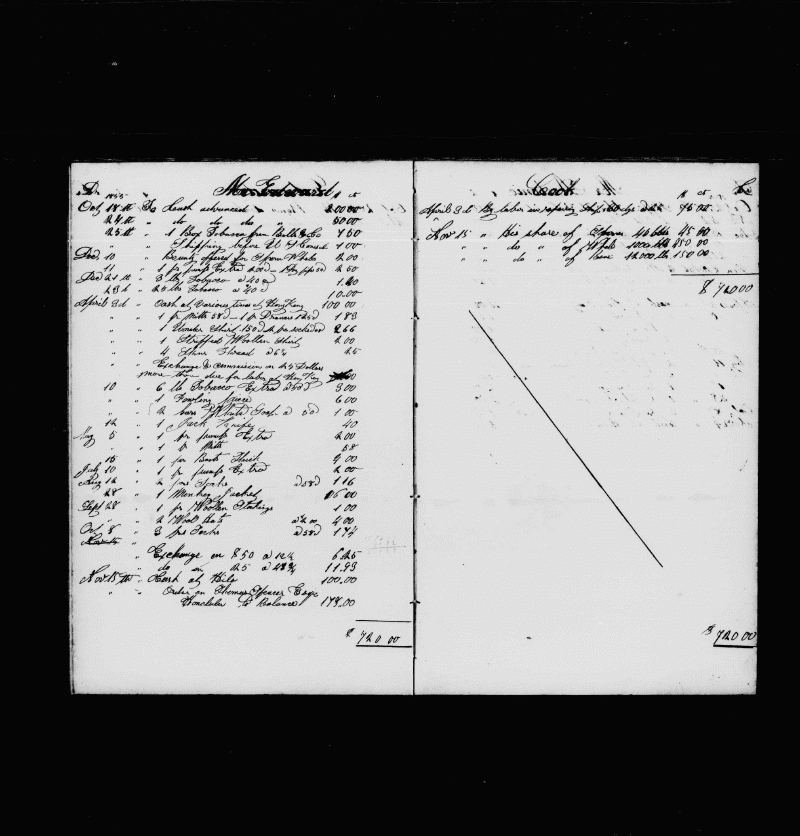 Dr Mr Edward
1855 $ ct
Oct 18th To Cash advanced 200 00
24th " do do do " 50 00
25th " 1 Box Tobacco from Bolles & Co 7 50
" Shipping before U S Consul 1 00
Decd 10 " Being offered for Sperm Whale 2 00
11 " 1 pr pumps Extra 2 50
Decd 21st " 3 lb Tobacco a 40 cd 1.20
23d " 25 lbs Tobacco a 40 cd 10.00
April 3d " Cash at Various times at Hong Kong 100 00
" " 1 pr Mitts 58d — 1 pr Drawers 125d 1 83
" " 1 Under Shirt 150d 2 66
" " 1 Striped Woollen Shirt 2 00
" " 4 Skns Thread a 6¼ 25
" Exchange & commission on 25 Dollars
more than due for labor at Hong Kong
10 " 6 lb Tobacco Extra a 50d 3 00
" " 1 Fowling piece 6 00
" " 2 bars White Soap a 50d 1 00
12 " 1 Jack Knife 40
May 5 " 1 pr pumps Extra 2 00
" " 1 pr Mitts 58
15 " 1 pr Boots Thick 4 00
July 10 " 1 pr pumps Extra 2 00
Aug 12 " 2 prs Socks a 58d 1 16
28 " 1 Monkey Jacket 00
Sept 28 " 1 pr Woollen Stockings 1 00
" " 2 Wool Hats a 2.00 4 00
Oct 8 " 3 prs Socks a 58d 1 74
" Exchange on $50 a 12½ 6.25
" do on 25 a 11.93
Nov 15th " Cash at Hilo 100.00
" " Order on Thomas Spencer Esqr
Honolulu to Balance 178.00
$ 720 00
Cook Cr
$ ct
April 3d By labor in repairing Ship 95 00
Nov 15 " His share of Sperm 40 bbls 45 00
" " do " of Whale 450 00
" " do " of bone 12.000 lbs 150 00
$ 720 00
$ 720 00